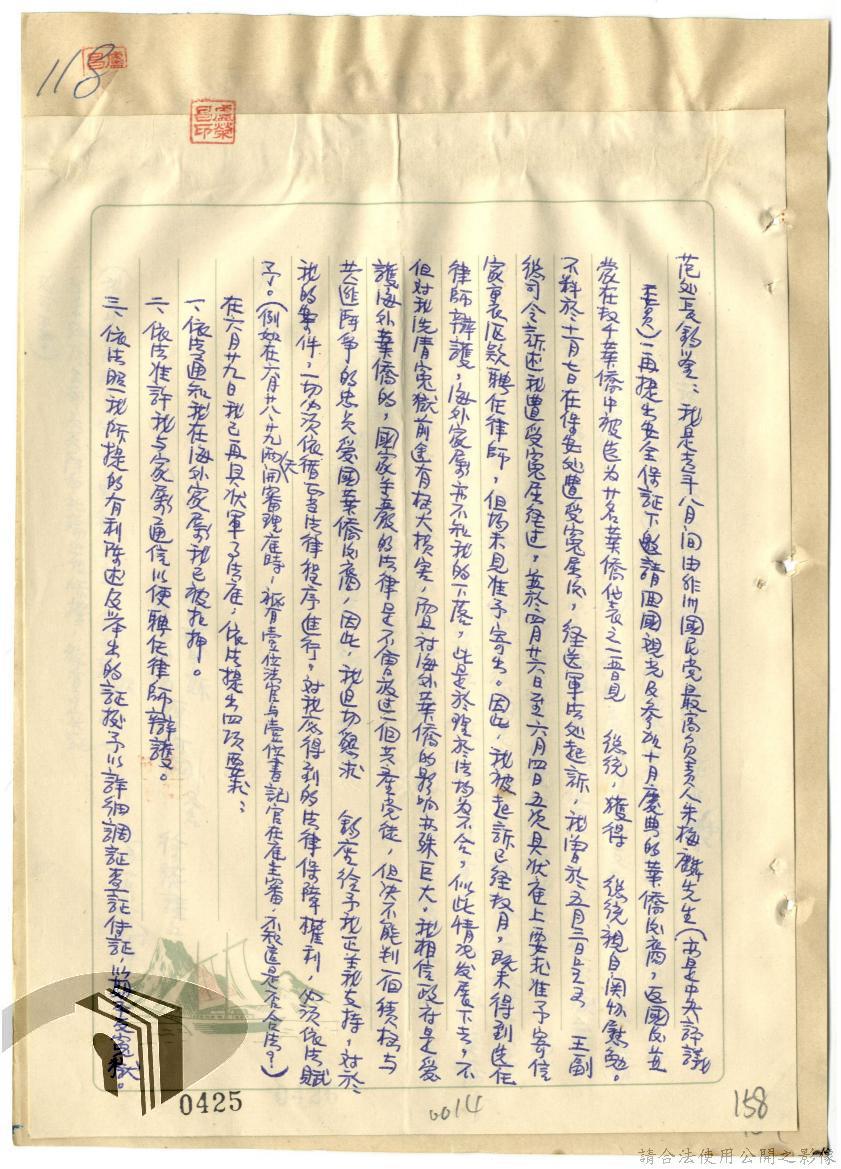 118
盧榮昌印
范處長鈞鑒：我是去年八月間由非洲國民党最高负责人朱梅麟先生（亦是中央評議
委員）一再提出安全保証下邀請回國観光及參加十月慶典的華僑後商，返國後並
蒙在数千華僑中被选为廿名華僑代表之一晋見 總統，獲得 總統親自関切慰勉。
不料於十一月七日在保安处遭受冤屈後，经送軍法处起訴，我曾於五月三日上文 王副
總司令訴述我遭受冤屈经过，並於四月廿六日至六月四日五次具狀庭上要求准予寄信
家裏匯款聘任律師，但均未見准予寄出。因此，我被起訴已经数月，既未得到选任
律師辯護，海外家屬亦不知我的下落，此是於理於法均为不合，似此情况发展下去，不
但对我洗清冤獄前途有极大损害，而且对海外華僑的影响亦殊巨大。我相信政府是爱
護海外華僑的，國家尊嚴的法律是不會放过一個共產党徒，但決不能判一個積极与
共匪鬥爭的忠贞爱國華僑後商，因此，我迫切籲求 鈞座给予我正義支持，对於
我的案件，一切必须依循正当法律程序進行，对我应得到的法律保障權利，必须依法賦
予。（例如在六月廿八、廿九兩天開審理庭時，祗有壹位法官与壹位書記官在庭主審，不知這是否合法？）
在六月廿九日我已再具狀軍事法庭，依法提出四項要求：
一、依法通知我在海外家屬我已被扣押。
二、依法准許我与家屬通信以便聘任律師辯護。
三、依法照我所提的有利陈述及举出的証据予以詳細調証查証传証，以
0425
0014
158
請合法使用公開之影像